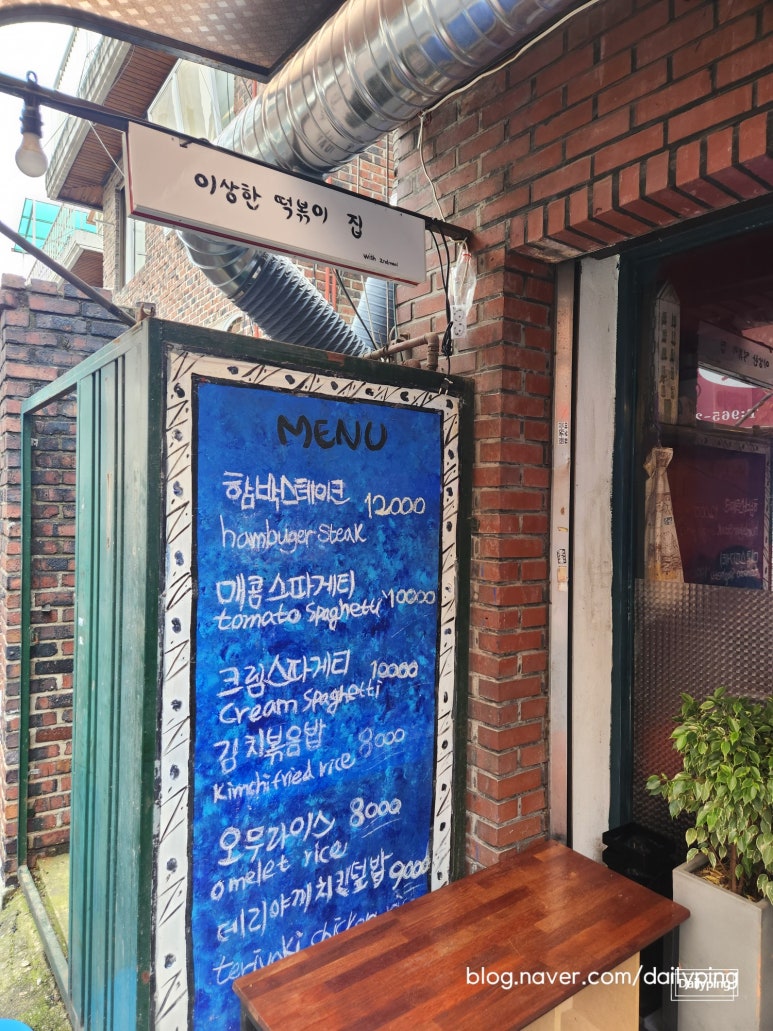 이상한 떡볶이 집
MENU
함박스테이크 12000
hambuger steak
매콤스파게티
tomato spaghetti 10000
크림스파게티 10000
Cream spaghetti
김치볶음밥 8000
Kimchi fried rice
오무라이스 8000
omelet rice
데리야끼치킨덮밥 9000
teriyaki chicken
blog.naver.com/dailyping
Dailyping